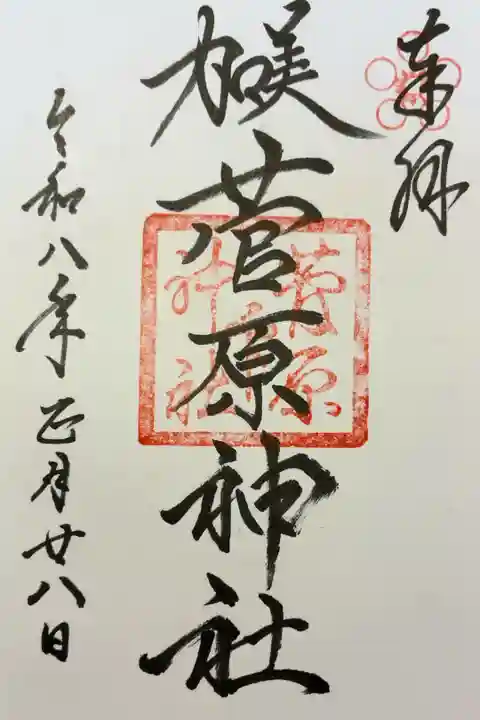 奉拝
加美菅原神社
菅原
神社
令和八年正月廿八日